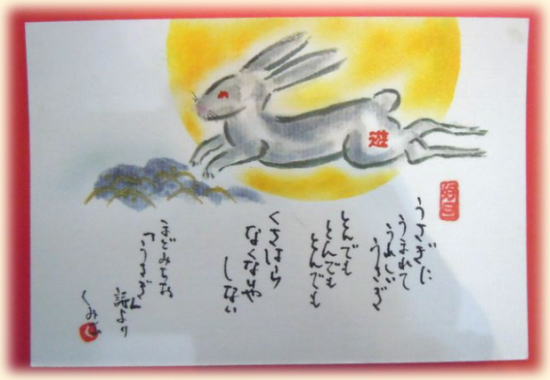 うさぎに
うまれて
うれしい
うさぎ
とんでも
とんでも
とんでも
くさはら
なくなりゃ
しない
まどみちお
「うさぎ」
詩より
くみ
遊